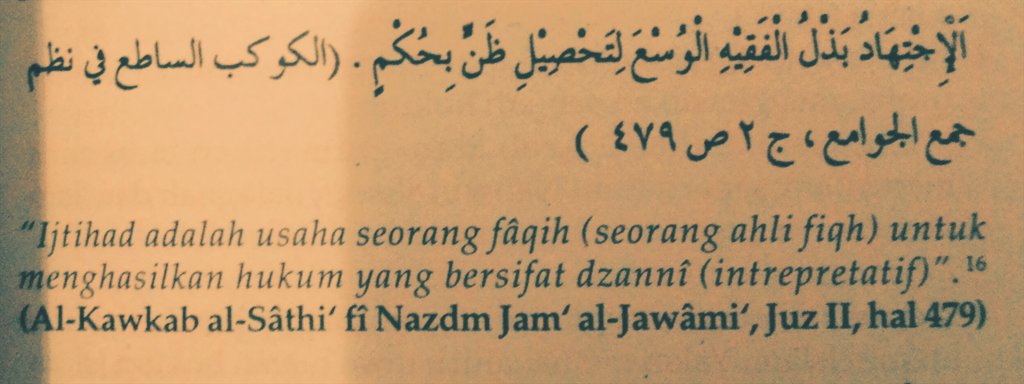 اَلْإِجْتِهَادُ بَذْلُ الْفَقِيْهِ الْوُسْعَ لِتَحْصِيْلِ ظَنٍّ بِحُكْمٍ . (الكوكب الساطع في نظم
جمع الجوامع ، ج ٢ ص ٤٧٩ )
“Ijtihad adalah usaha seorang fâqih (seorang ahli fiqh) untuk
menghasilkan hukum yang bersifat dzannî (intrepretatif)”.¹⁶
(Al-Kawkab al-Sâthi‘ fî Nazdm Jam‘ al-Jawâmi‘, Juz II, hal 479)